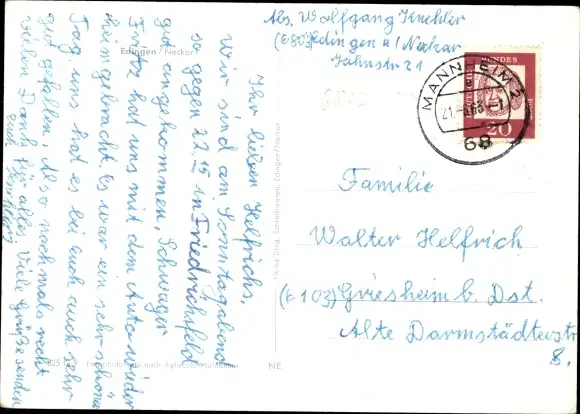 Abs. Wolfgang Knehler
(6803) Edingen a/Neckar
Jahnstr 21
Edingen / Neckar
Ihr lieben Helfrichs,
wir sind am Sonntagabend
so gegen 22.15 in Friedrichsfeld
gut angekommen, Schwager
Fritz hat uns mit dem Auto wieder
heimgebracht. Es war ein sehr schöner
Tag uns hat es bei euch auch sehr
gut gefallen. Also nochmals recht
vielen Dank für alles. Viele Grüße senden
euch
MANNHEIM 2
68
DEUTSCHE BUNDESPOST
20
Familie
Walter Helfrich
(6103) Griesheim b. Dst.
Alte Darmstädterstr
8.
NE